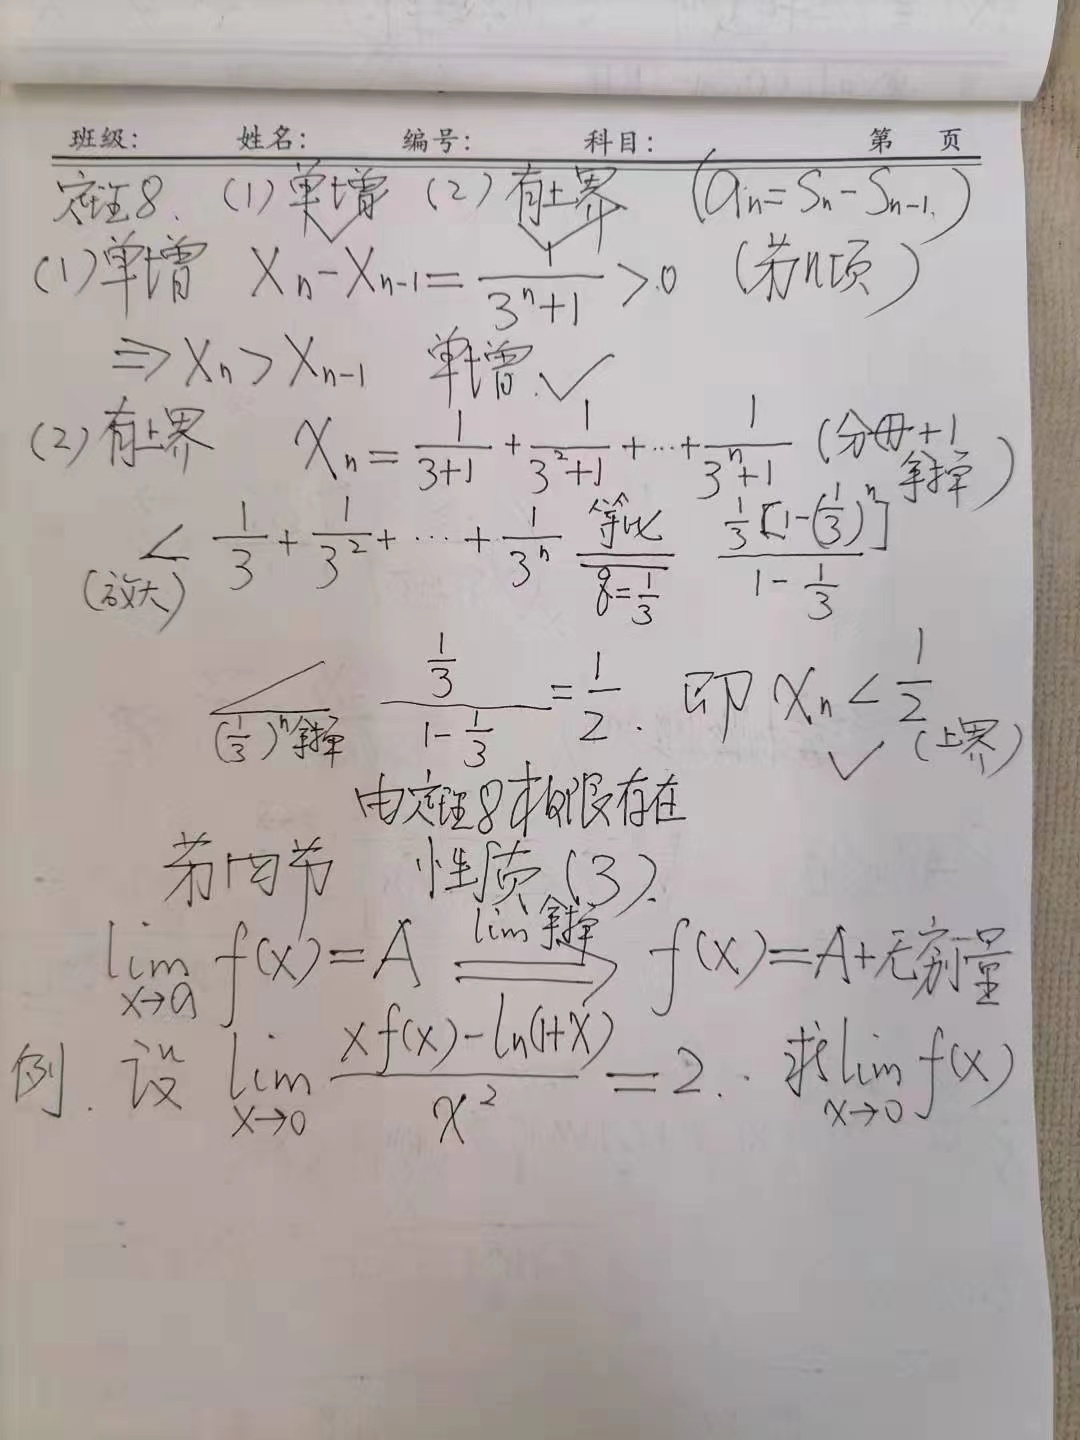 班级: 姓名: 编号: 科目: 第 页
定理8. (1)单增 (2)有上界 (an=Sn-Sn-1.)
(1)单增 Xn-Xn-1=1/(3^n+1)>0 (第n项)
⇒Xn>Xn-1 单增.✓
(2)有上界 Xn=1/(3+1)+1/(3^2+1)+…+1/(3^n+1) (分母+1拿掉)
<(放大) 1/3+1/3^2+…+1/3^n 等比 q=1/3 1/3[1-(1/3)^n]/(1-1/3)
< (1/3)^n拿掉 (1/3)/(1-1/3)=1/2. 即 Xn<1/2 (上界)✓
由定理8极限存在
第四节 性质(3).
lim x→a f(x)=A lim拿掉 ⇒ f(x)=A+无穷小量
例. 设 lim x→0 (xf(x)-ln(1+x))/x^2=2. 求lim x→0 f(x)